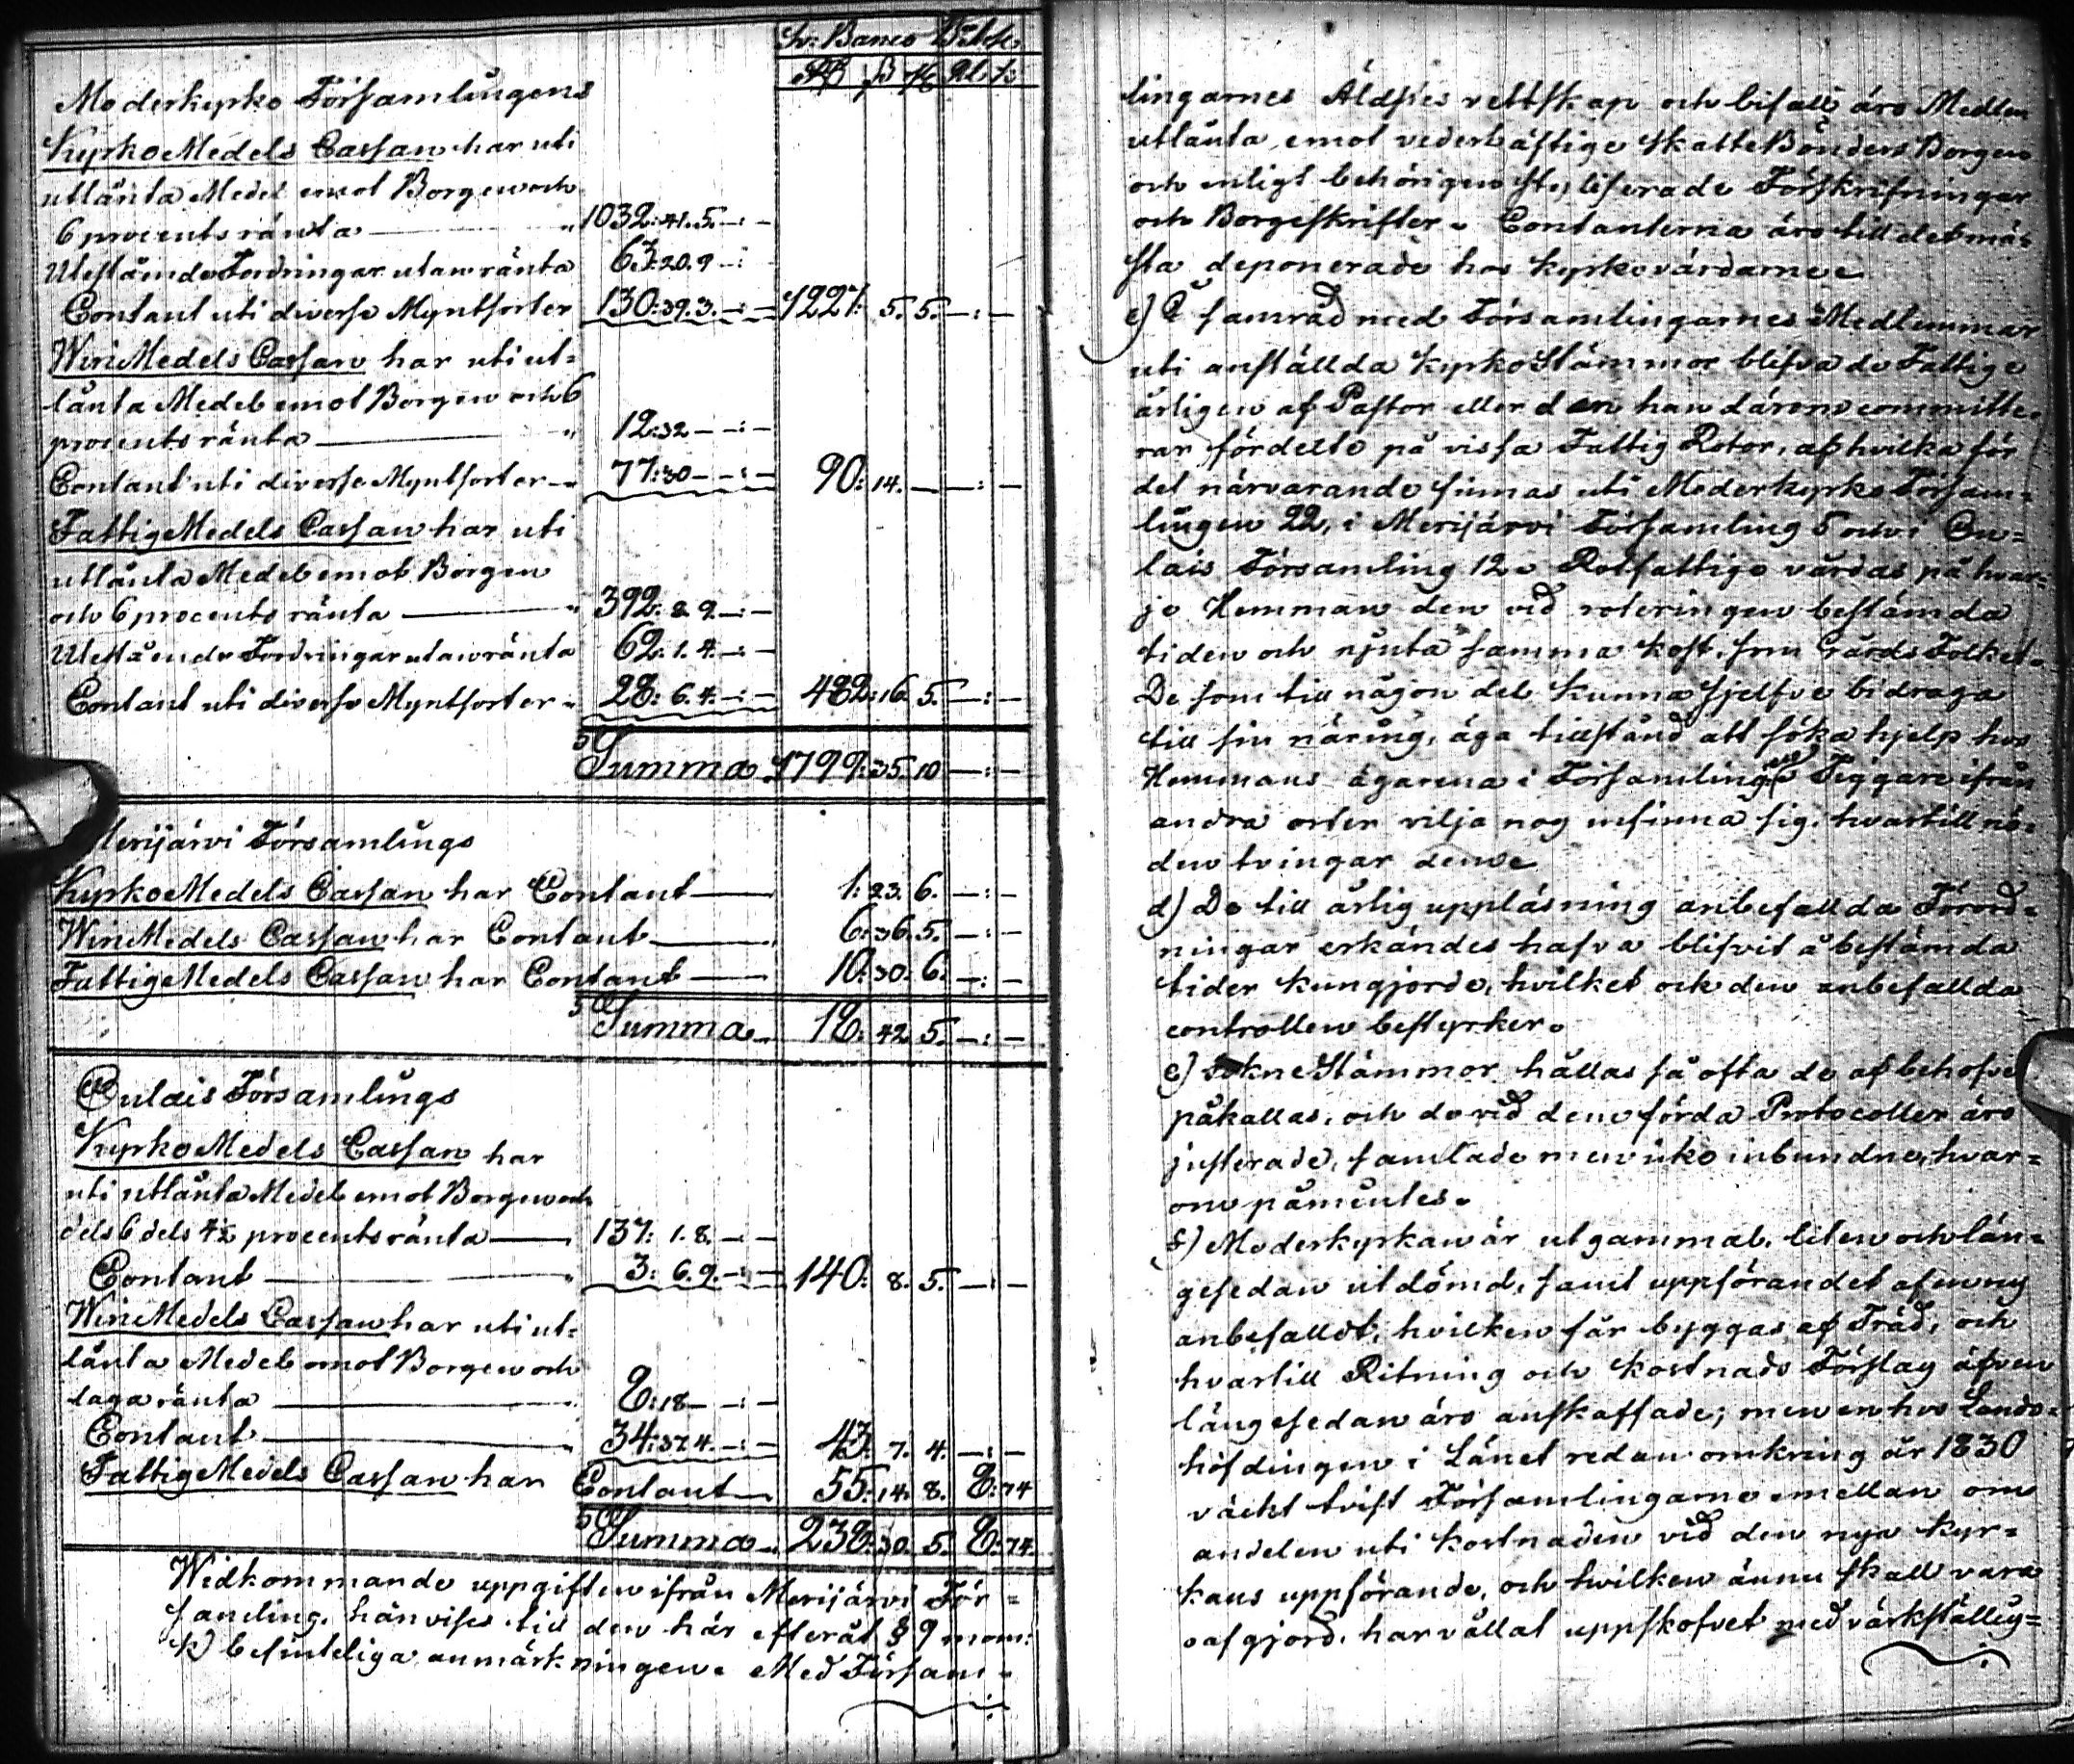 Sv: Banco
Moderkyrko Församlingens
KyrkoMedels Cassan har uti
utlånta Medel emot Borgen och
6 procents ränta — " 1032: 41. 5. —:—
Utestående Fordringar utan ränta 63: 20. 9 —:
Contant uti diverse Myntsorter 130: 39. 3. —:— 1227: 5. 5. —:—
WinMedels Cassan har uti ut=
lånta Medel emot Borgen och 6
procents ränta — " 12: 32 — —:—
Contant uti diverse Myntsorter — 77: 30 — —:— 90: 14. — —:—
FattigMedels Cassan har uti
utlånta Medel emot Borgen
och 6 procents ränta — " 392: 8. 9. —:—
Utestående Fordringar utan ränta 62: 1. 4. —:—
Contant uti diverse Myntsorter 28: 6. 4. —:— 482: 16. 5. —:—
Summa 1799: 35. 10 —:—
Merijärvi Församlings
KyrkoMedels Cassan har Contant — 1: 23. 6. —:—
WinMedels Cassan har Contant — 6: 36. 5. —:—
FattigMedels Cassan har Contant — 10: 30. 6. —:—
Summa 18: 42. 5. —:—
Oulais Församlings
KyrkoMedels Cassan har
uti utlånta Medel emot Borgen och
dels 6 dels 4½ procents ränta — 137: 1. 8. —:—
Contant — " 3: 6. 9. —:— 140: 8. 5. —:—
WinMedels Cassan har uti ut=
lånta Medel emot Borgen och
laga ränta — 8: 18 — —:—
Contant — 34: 37. 4. —:— 43: 7. 4. —:—
FattigMedels Cassan har Contant — 55: 14. 8. 8: 74
Summa 238: 30. 5. 8: 74.
Widkommande uppgiften ifrån Merijärvi För=
samling, hänvises till den här efteråt § 9 mom:
k) befinteliga anmärkningen. Med Församl=
lingarnes Äldstes vettskap och bifall äro Medlen
utlånta emot vederhäftige SkatteBönders Borgen
och enligt behörigen stiliserade Förskrifningar
och Borgeskrifter. Contanterna äro till det mä=
sta deponerade hos kyrkovärdarne.
c) I samråd med Församlingarnes Medlemmar
uti anställda kyrkoStämmor blifva de Fattige
årligen af Pastor eller den han därom committe=
rar fördelte på vissa Fattig Rotor, af hvilka för
det närvarande finnas uti Moderkyrko Försam=
lingen 22, i Merijärvi Församling 5 och i Ou=
lais Församling 12. Rotfattige vårdas på hvar=
je Hemman den vid roteringen bestämda
tiden och njuta samma kost, som GårdsFolket.
De som till någon del kunna sjelfve bidraga
till sin näring, äga tillstånd att söka hjelp hos
Hemmans ägarena i Församlingen. Tiggare ifrån
andra orter vilja nog infinna sig, hvartill nö=
den tvingar dem.
d) De till årlig uppläsning anbefallda Förord=
ningar erkändes hafva blifvit å bestämda
tider kungjorde, hvilket ock den anbefallda
controllen bestyrker.
e) SokneStämmor hållas så ofta de af behofvet
påkallas, och de vid dem förda Protocoller äro
justerade, samlade men icke inbundne, hvar=
om påmintes.
f) Moderkyrkan är utgammal, liten och län=
gesedan utdömd, samt uppförandet af en ny
anbefalldt, hvilken får byggas af Träd, och
hvartill Ritning och kostnads Förslag äfven
längesedan äro anskaffade; men en hos Lands=
höfdingen i Länet redan omkring år 1830
väckt tvist Församlingarne emellan om
andelen uti kostnaden vid den nya kyr=
kans uppförande, och hvilken ännu skall vara
oafgjord, har vållat uppskofvet med värkställig=